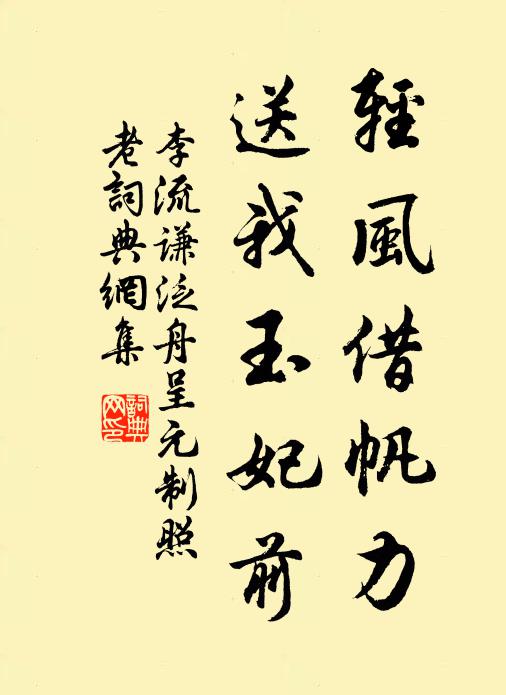 輕風借帆力
送我玉妃前
李流謙泛舟呈元制照
老詞典網集
詞典
网印